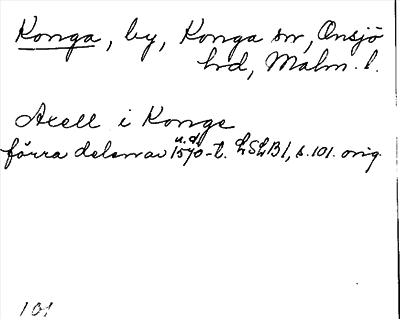 Konga, by, Konga sn, Onsjö
hrd, Malm. l.
Axell i Konge
u.d.
förra delen av 1570-t. LSLB1, s. 101. orig.
101